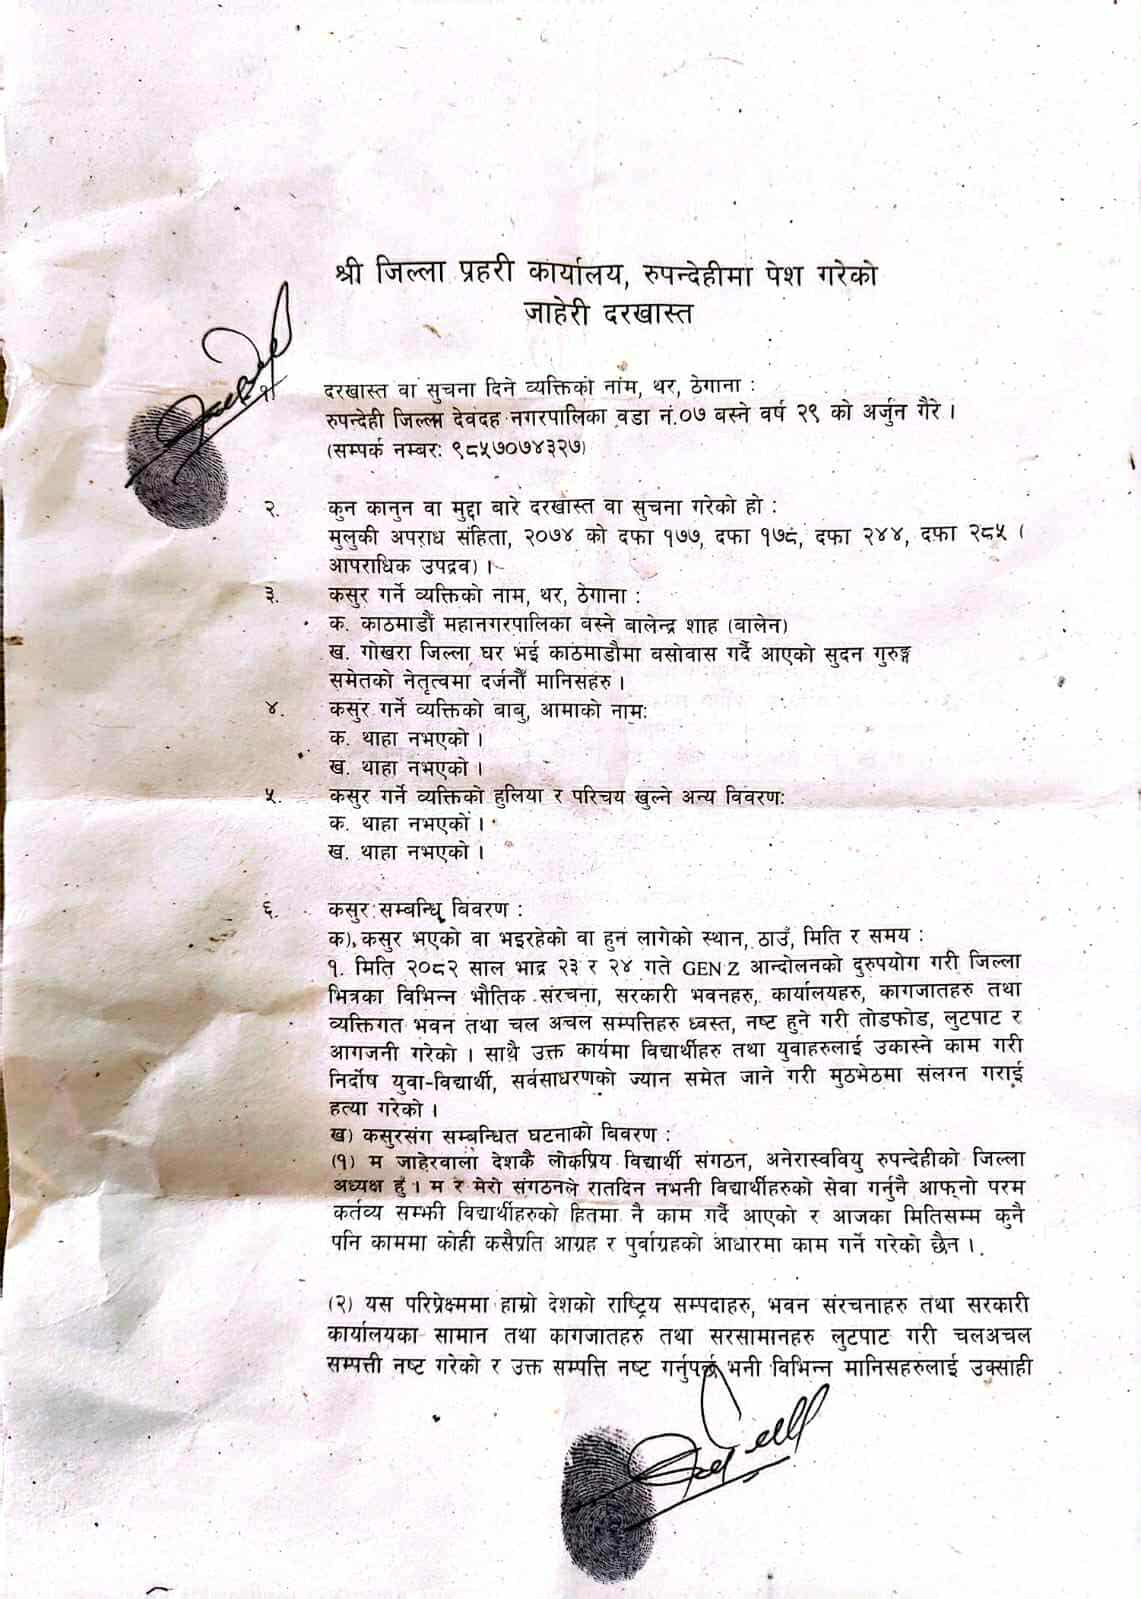 श्री जिल्ला प्रहरी कार्यालय, रुपन्देहीमा पेश गरेको
जाहेरी दरखास्त
१. दरखास्त वा सुचना दिने व्यक्तिको नाम, थर, ठेगाना :
रुपन्देही जिल्ला देवदह नगरपालिका वडा नं.०७ बस्ने वर्ष २९ को अर्जुन गैरे ।
(सम्पर्क नम्बरः ९८५७०७४३२७)
२. कुन कानुन वा मुद्दा बारे दरखास्त वा सुचना गरेको हो :
मुलुकी अपराध संहिता, २०७४ को दफा १७७, दफा १७८, दफा २४४, दफा २८५ (
आपराधिक उपद्रव) ।
३. कसुर गर्ने व्यक्तिको नाम, थर, ठेगाना :
क. काठमाडौं महानगरपालिका बस्ने बालेन्द्र शाह (बालेन)
ख. गोखरा जिल्ला घर भई काठमाडौमा बसोवास गर्दै आएको सुदन गुरुङ्ग
समेतको नेतृत्वमा दर्जनौं मानिसहरु ।
४. कसुर गर्ने व्यक्तिको बाबु, आमाको नामः
क. थाहा नभएको ।
ख. थाहा नभएको ।
५. कसुर गर्ने व्यक्तिको हुलिया र परिचय खुल्ने अन्य विवरणः
क. थाहा नभएको ।
ख. थाहा नभएको ।
६. कसुर सम्बन्धि विवरण :
क) कसुर भएको वा भइरहेको वा हुन लागेको स्थान, ठाउँ, मिति र समय :
१. मिति २०८२ साल भाद्र २३ र २४ गते GEN Z आन्दोलनको दुरुपयोग गरी जिल्ला
भित्रका विभिन्न भौतिक संरचना, सरकारी भवनहरु, कार्यालयहरु, कागजातहरु तथा
व्यक्तिगत भवन तथा चल अचल सम्पत्तिहरु ध्वस्त, नष्ट हुने गरी तोडफोड, लुटपाट र
आगजनी गरेको । साथै उक्त कार्यमा विद्यार्थीहरु तथा युवाहरुलाई उकास्ने काम गरी
निर्दोष युवा-विद्यार्थी, सर्वसाधरणको ज्यान समेत जाने गरी मुठभेठमा संलग्न गराई
हत्या गरेको ।
ख) कसुरसंग सम्बन्धित घटनाको विवरण :
(१) म जाहेरवाला देशकै लोकप्रिय विद्यार्थी संगठन, अनेरास्ववियु रुपन्देहीको जिल्ला
अध्यक्ष हुं । म र मेरो संगठनले रातदिन नभनी विद्यार्थीहरुको सेवा गर्नुनै आफ्नो परम
कर्तव्य सम्झी विद्यार्थीहरुको हितमा नै काम गर्दै आएको र आजका मितिसम्म कुनै
पनि काममा कोही कसैप्रति आग्रह र पुर्वाग्रहको आधारमा काम गर्ने गरेको छैन ।
(२) यस परिप्रेक्ष्यममा हाम्रो देशको राष्ट्रिय सम्पदाहरु, भवन संरचनाहरु तथा सरकारी
कार्यालयका सामान तथा कागजातहरु तथा सरसामानहरु लुटपाट गरी चलअचल
सम्पत्ती नष्ट गरेको र उक्त सम्पत्ति नष्ट गर्नुपर्छ भनी विभिन्न मानिसहरुलाई उक्साही